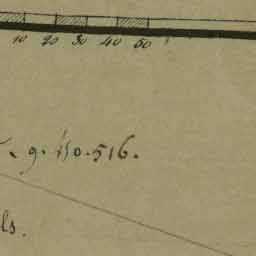 10 20 30 40 50
9.150.516.
ls.